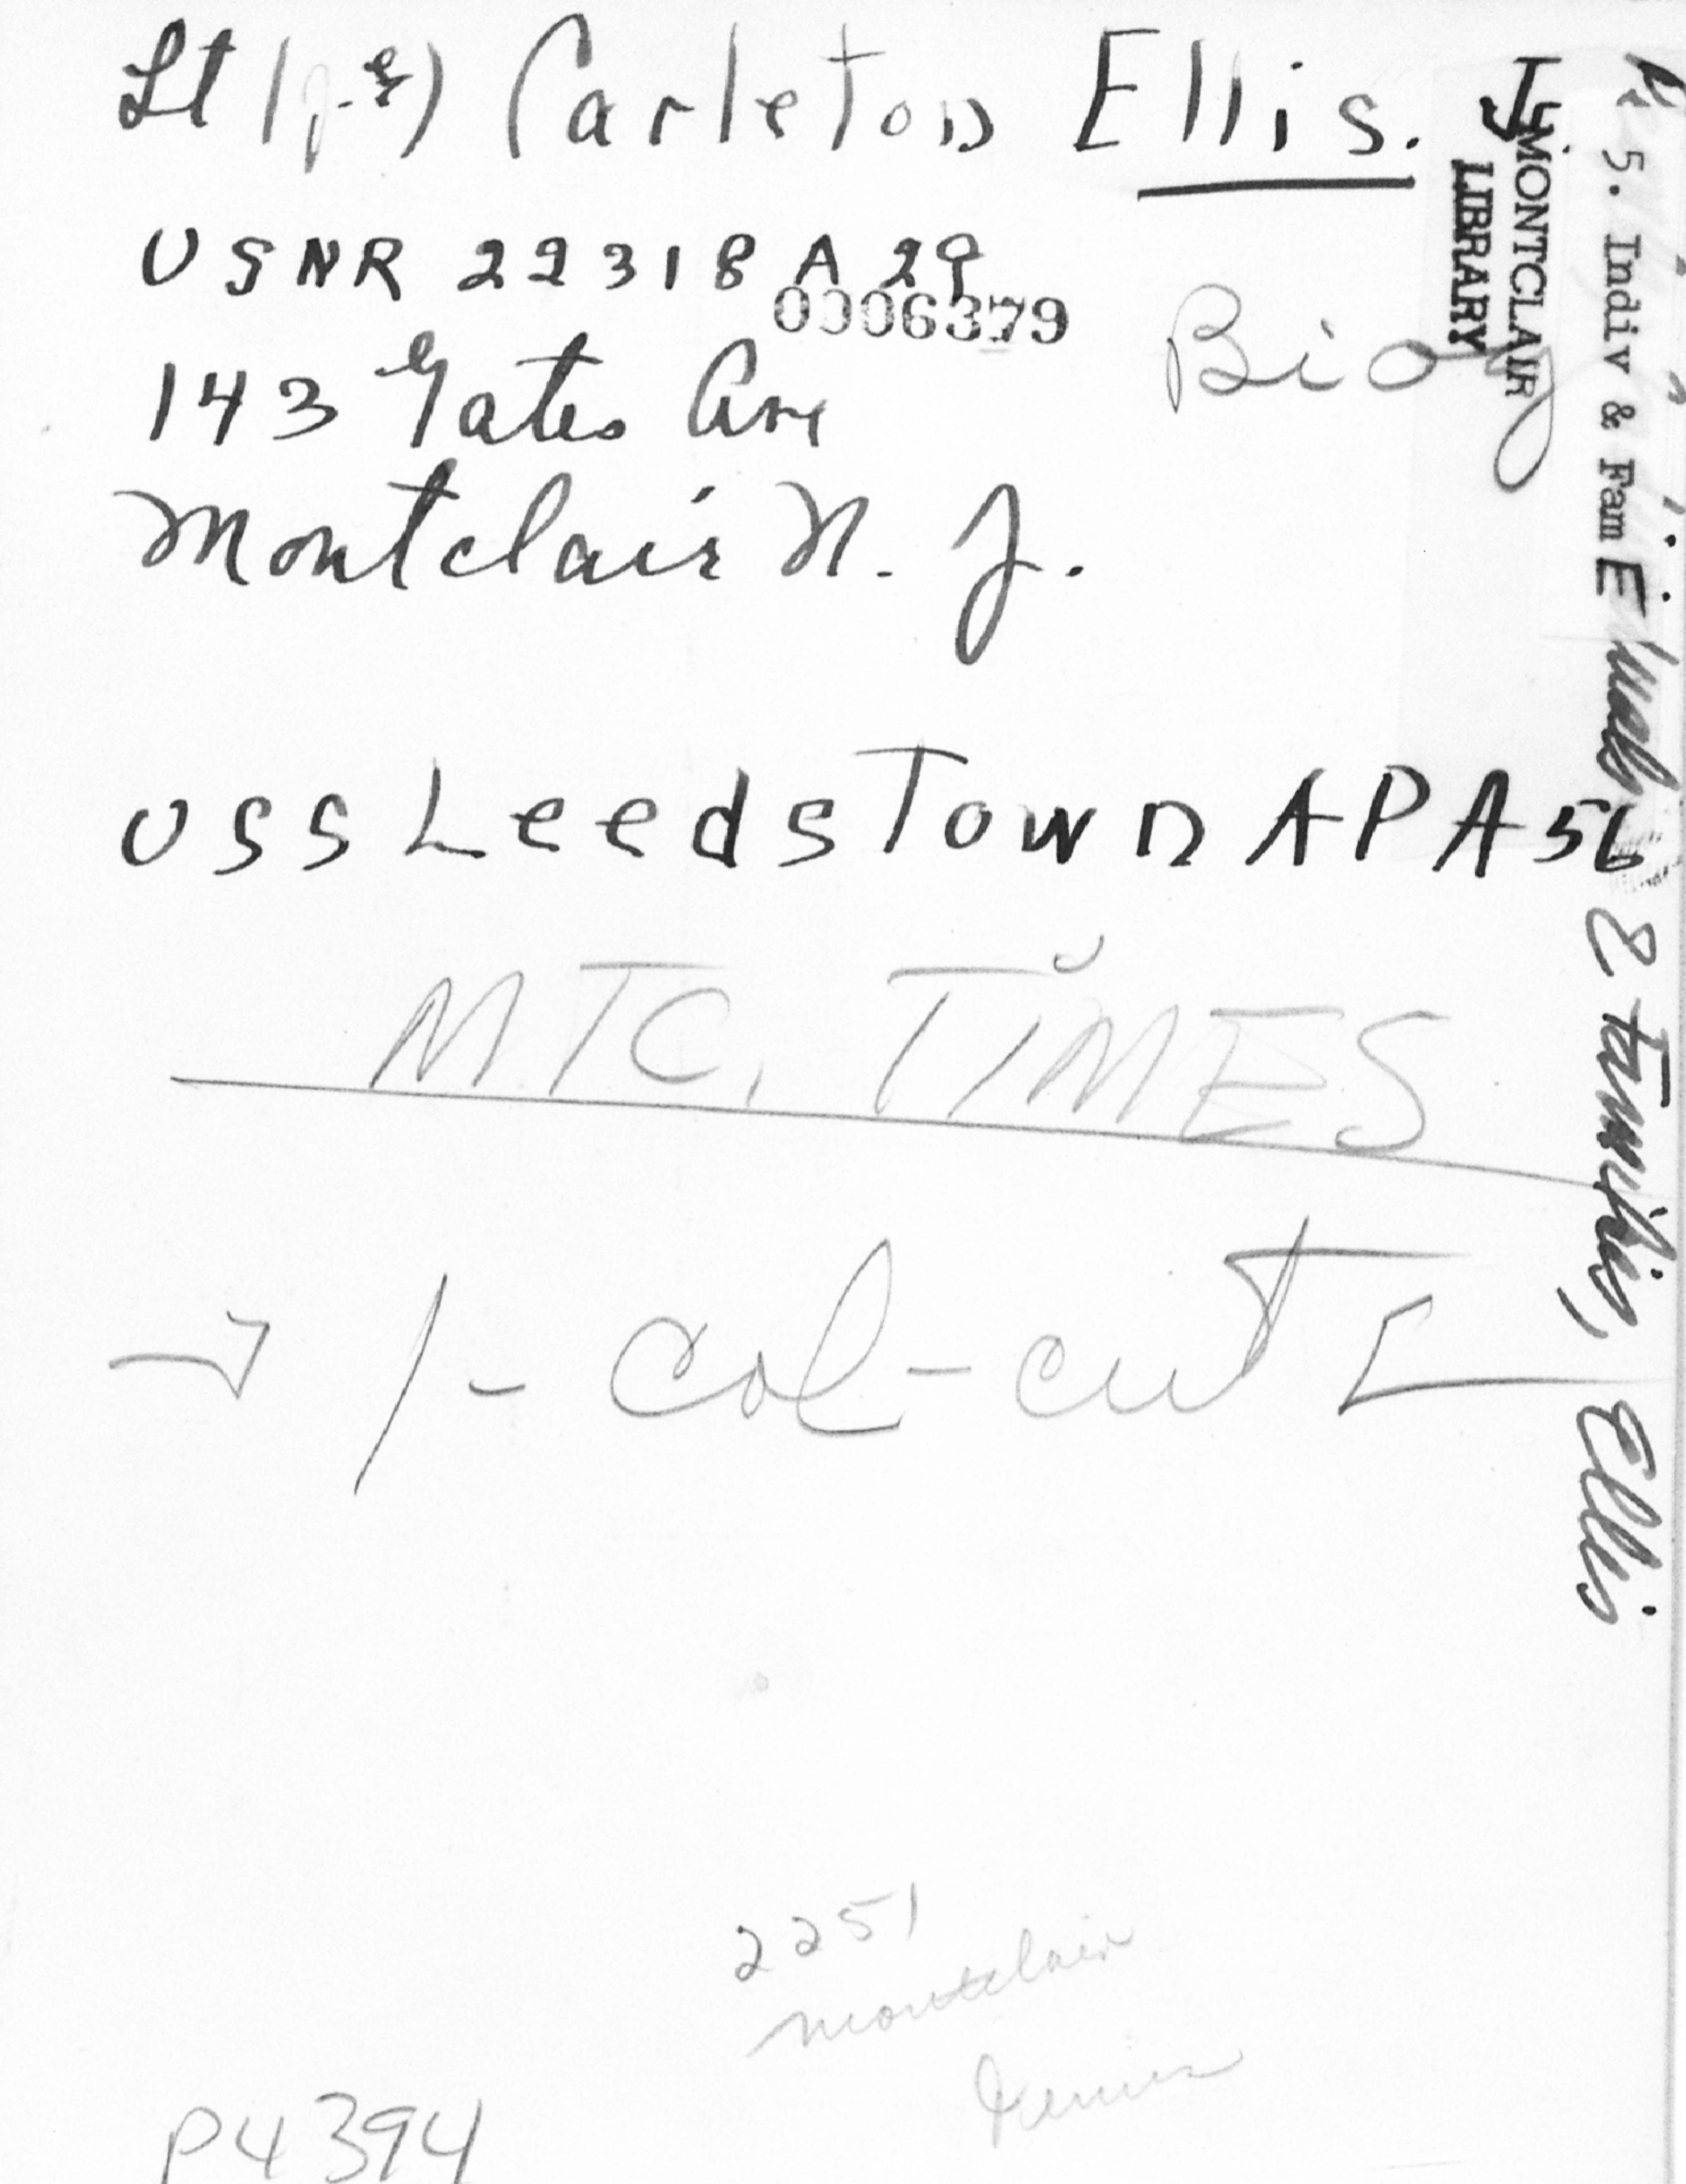 Lt (j-g) Carleton Ellis. Jr.
USNR 22318 A 29
0006379
143 Gates Ave
Montclair N. J.
Biog
MONTCLAIR
LIBRARY
5. Indiv & Fam E
& Families, Ellis
USS LeedsTown APA 56
MTC. TIMES
→ 1-col-cut
2251
Montclair
P4394